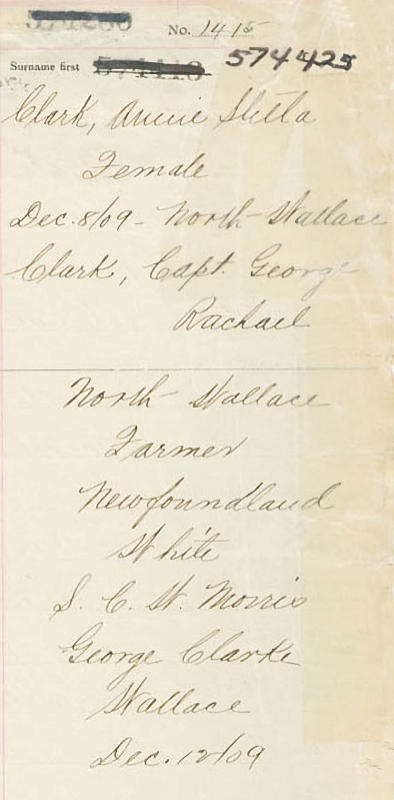 No. 1415
Surname first 574425
Clark, Annie Stella
Female
Dec. 8/09 - North Wallace
Clark, Capt. George
Rachael
North Wallace
Farmer
Newfoundland
White
S. C. W. Morris
George Clarke
Wallace
Dec. 12/09